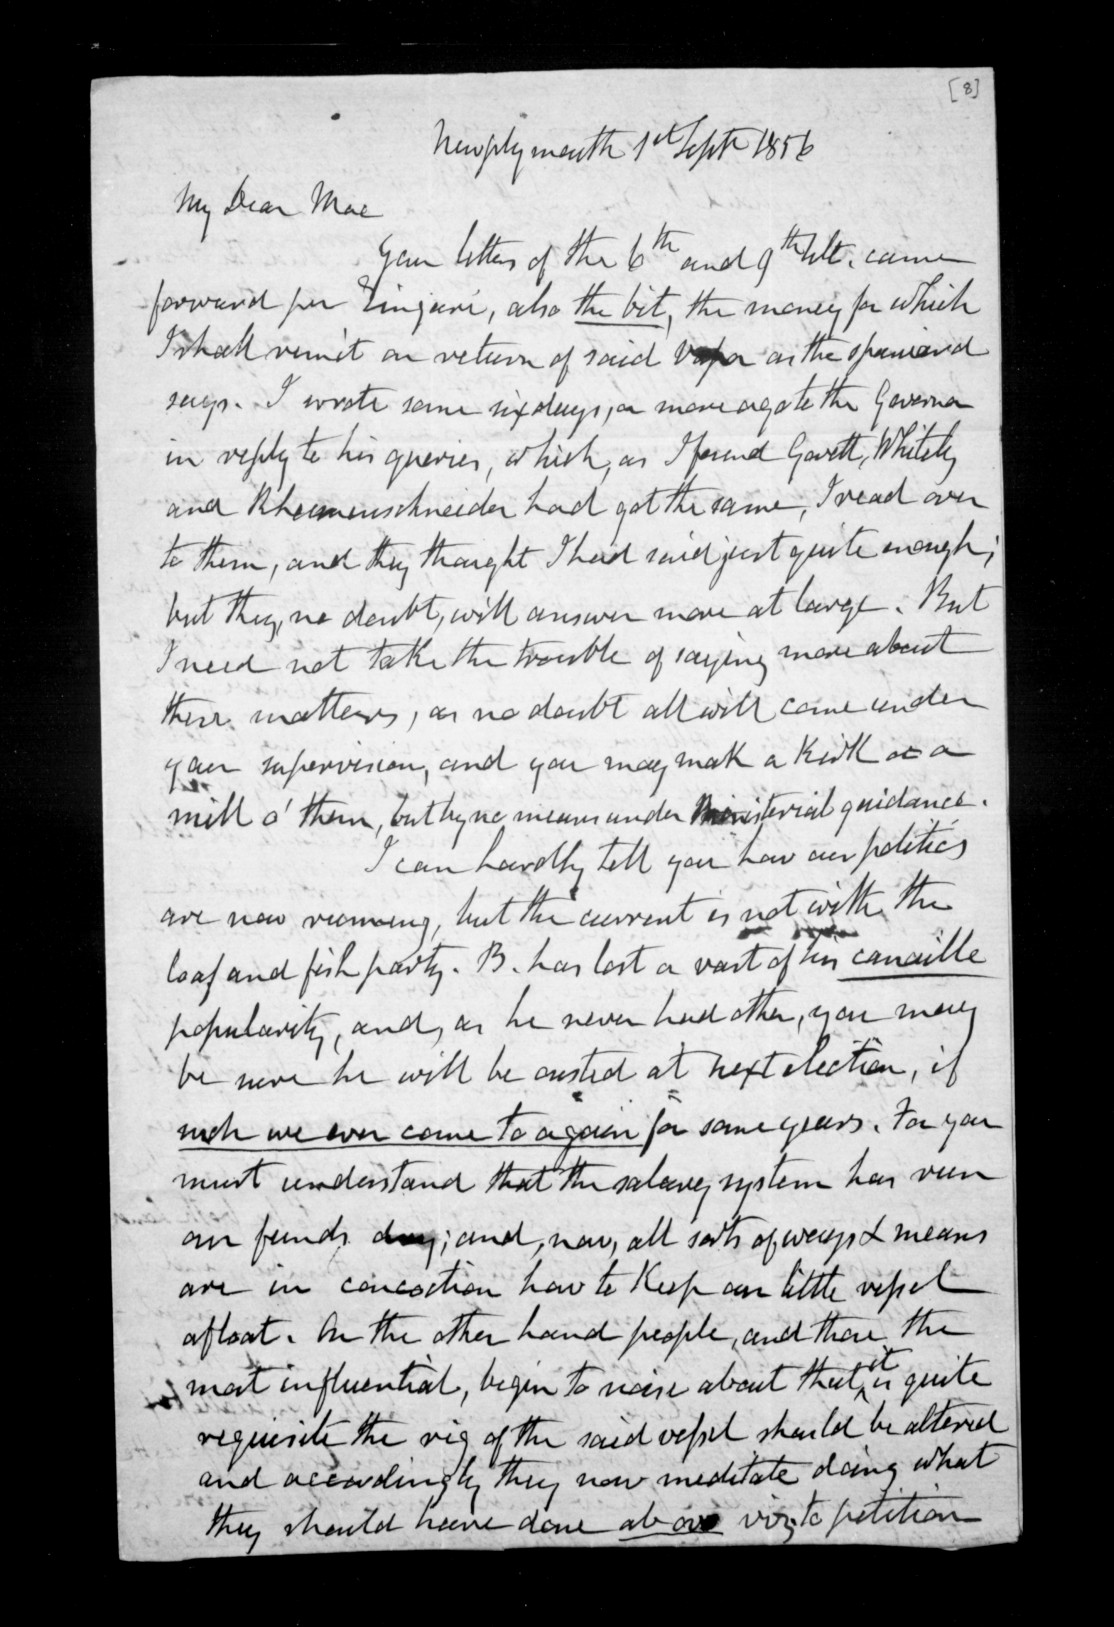 [8]
Newplymouth 1st Septr 1856
My Dear Mac
Your letters of the 6th and 9th Ult. came
forward per Zingari, also the bit, the money for which
I shall remit on return of said Vapor as the spaniard
says. I wrote some six days, or more ago to the Governor
in reply to his queries, which, as I found Govett, Whitely
and Rheimenschneider had got the same, I read over
to them, and they thought I had said just quite enough;
but they, no doubt, will answer more at large. But
I need not take the trouble of saying more about
these matters, as no doubt all will come under
your supervision, and you may mak a Kirk or a
mill o' them, but by no means under Ministerial guidance.
I can hardly tell you how our politics
are now running, but the current is not with the
loaf and fish party. B. has lost a vast of his canaille
popularity, and, as he never had other, you may
be sure he will be ousted at next election, if
such we ever come to again for some years. For you
must understand that the salary system has run
our funds dry; and, now, all sorts of ways & means
are in concoction how to Keep our little vessel
afloat. On the other hand people, and those the
most influential, begin to noise about that it is quite
requisite the rig of the said vessel should be altered
and accordingly they now meditate doing what
they should have done ab ovo viz to petition